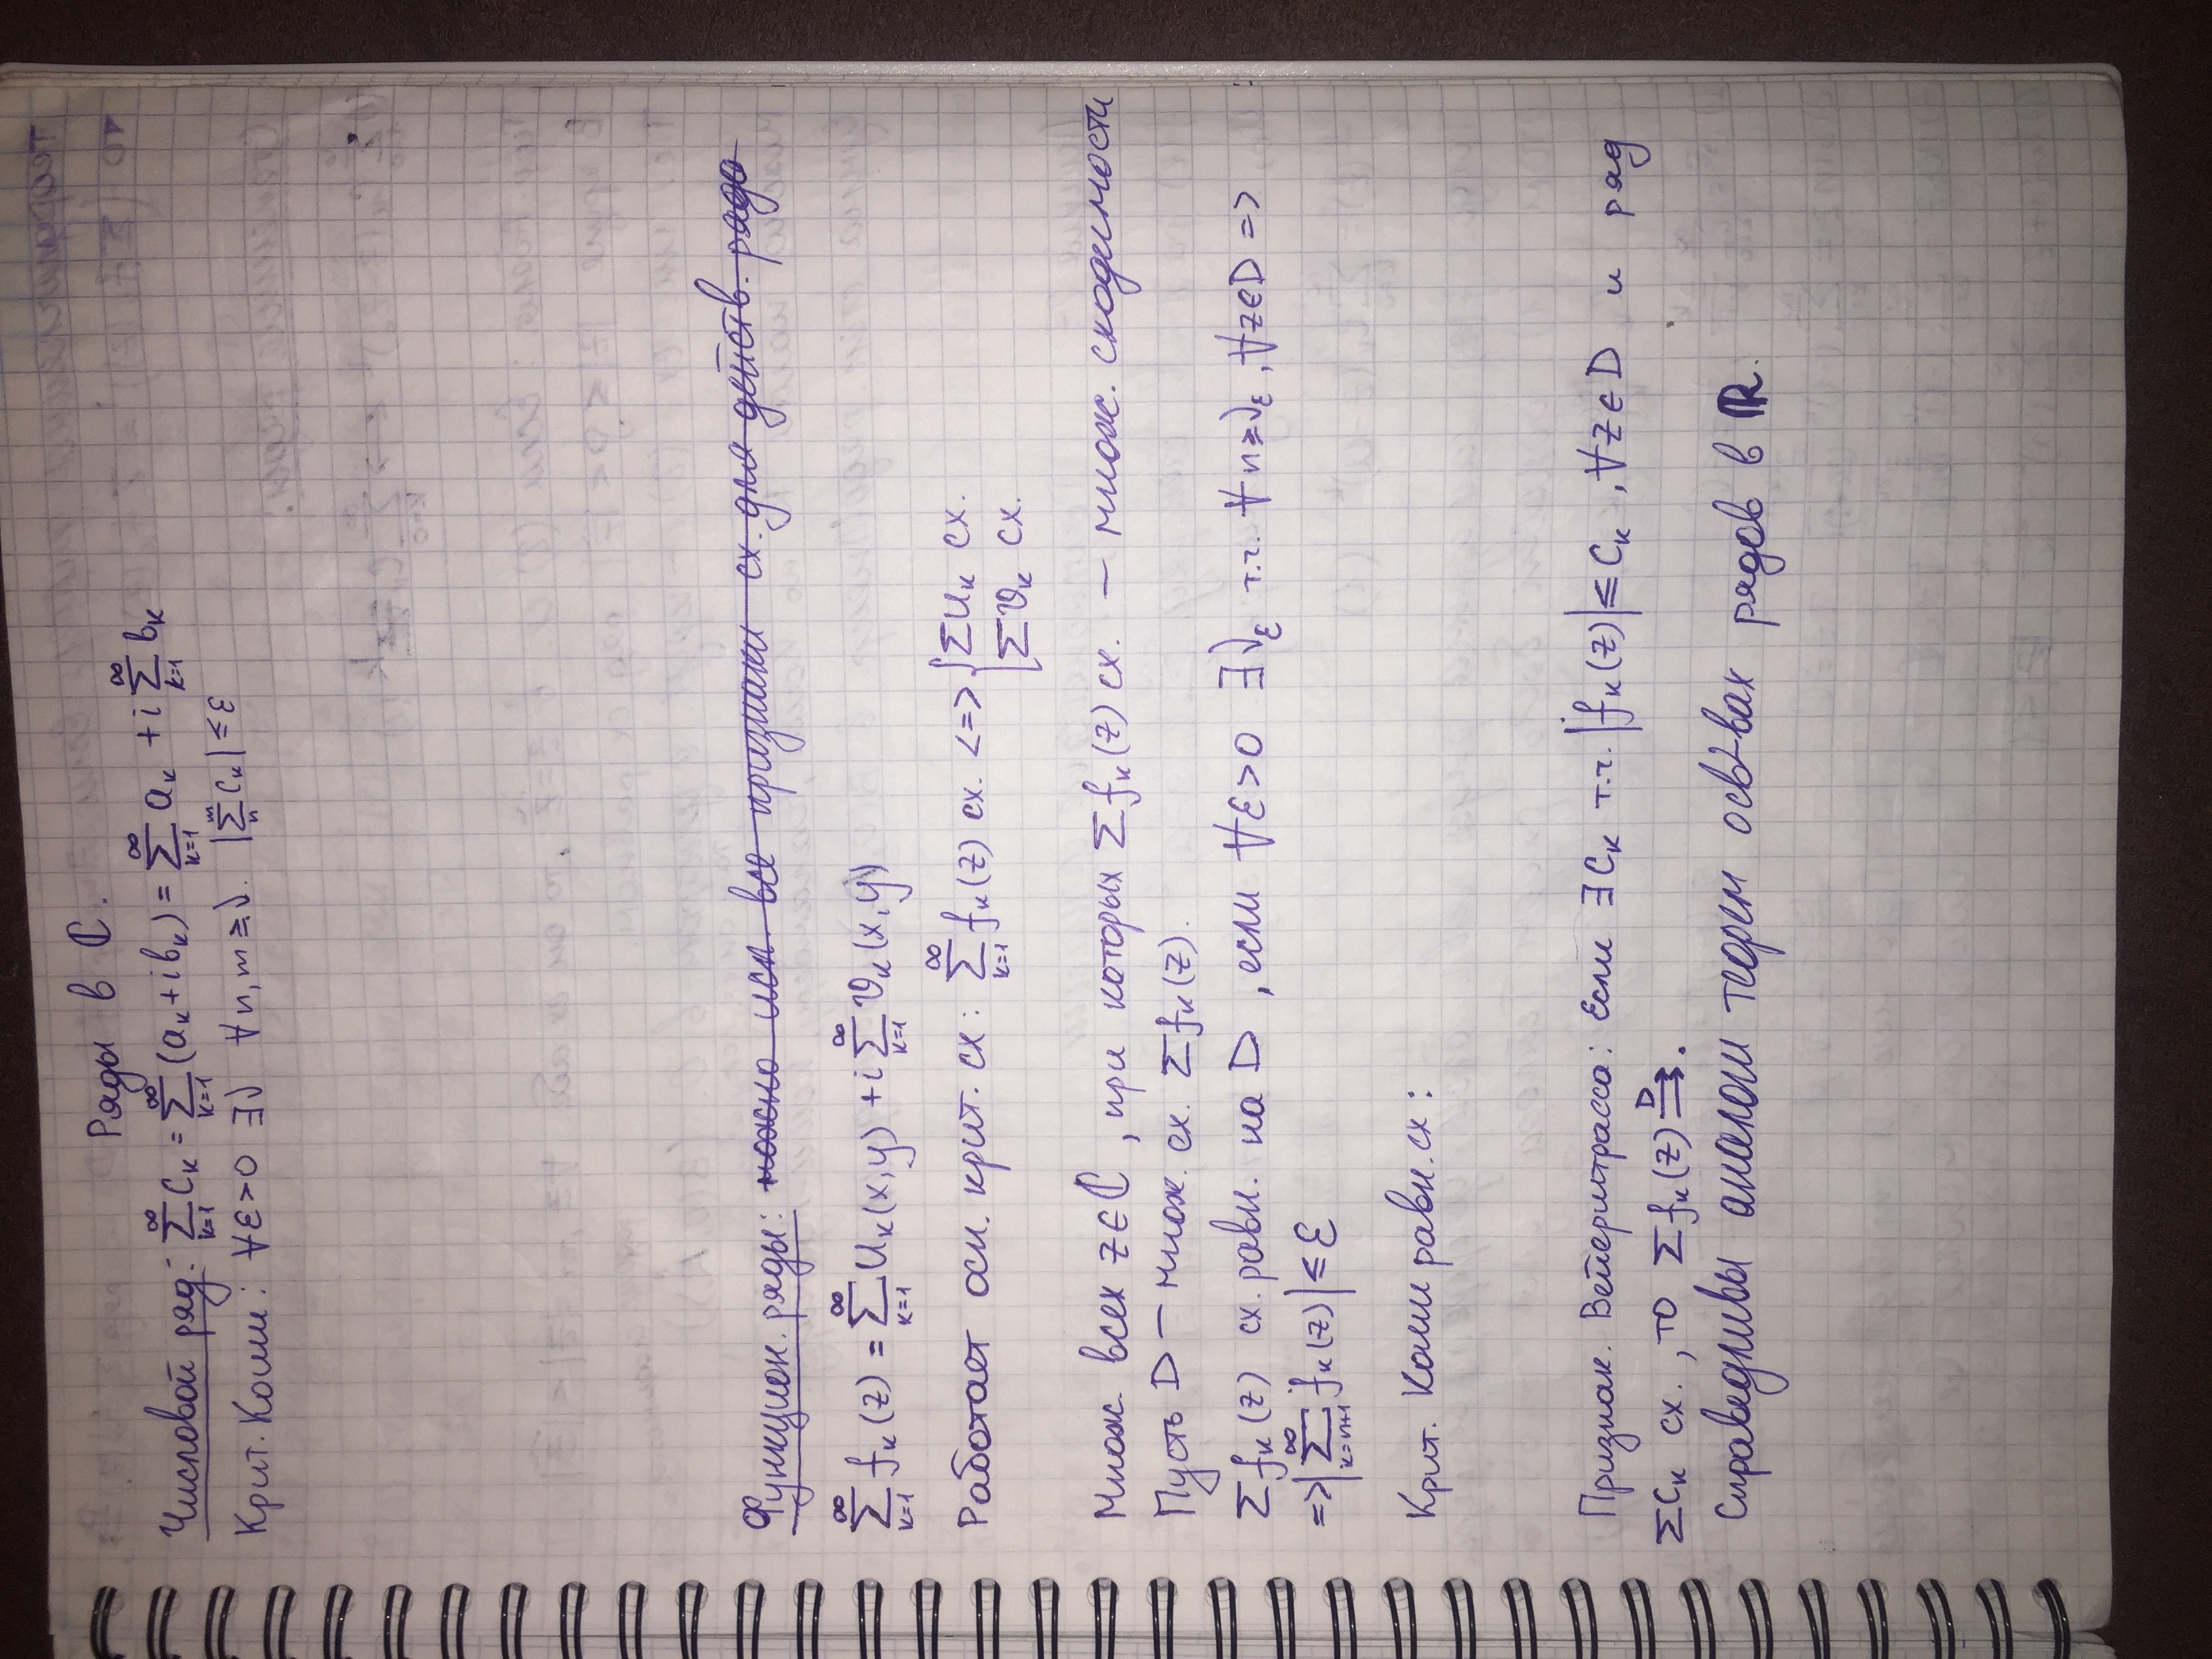 Ряды в ℂ.
Числовой ряд: ∑_{k=1}^∞ C_k = ∑_{k=1}^∞ (a_k + i b_k) = ∑_{k=1}^∞ a_k + i ∑_{k=1}^∞ b_k
Крит. Коши: ∀ε>0 ∃ν ∀n,m ≥ ν. |∑_n^m C_k| ≤ ε
Функцион. ряды: можно исп. все признаки сх. для действ. ряда
∑_{k=1}^∞ f_k(z) = ∑_{k=1}^∞ U_k(x,y) + i ∑_{k=1}^∞ V_k(x,y)
Работает осн. крит. сх: ∑_{k=1}^∞ f_k(z) сх. <=> { ∑U_k сх.
∑V_k сх.
Множ. всех z∈ℂ, при которых ∑f_k(z) сх. — множ. сходимости
Пусть D — множ. сх. ∑f_k(z).
∑f_k(z) сх. равн. на D, если ∀ε>0 ∃ν_ε т.ч. ∀n≥ν_ε, ∀z∈D =>
=> |∑_{k=n+1}^∞ f_k(z)| ≤ ε
Крит. Коши равн. сх:
Признак. Вейерштрасса: Если ∃C_k т.ч. |f_k(z)| ≤ C_k, ∀z∈D и ряд
∑C_k сх., то ∑f_k(z) ⇉^D.
Справедливы аналоги теорем о св-вах рядов в ℝ.